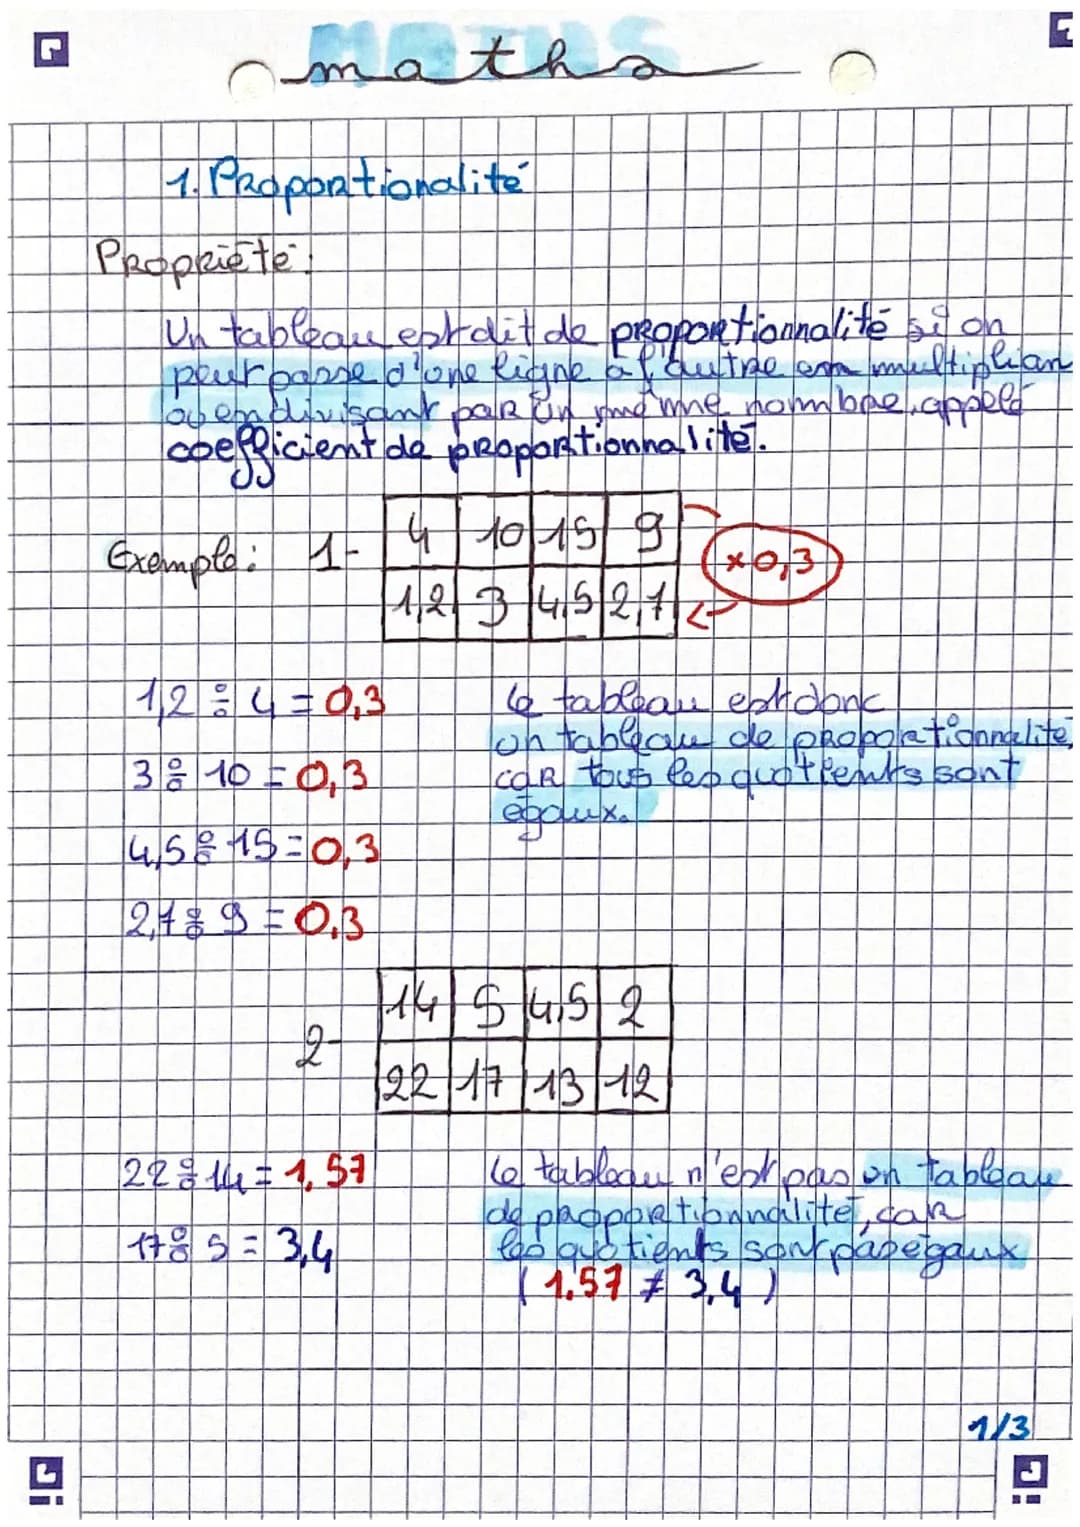 MATHS
maths
1. Proportionalité
Propriété :
Un tableau est dit de proportionnalité si on
peut passe d'une ligne à l'autre en multiplian
ou en divisant par un même nombre, appelé
coefficient de proportionnalité.
Exemple : 1-
4 10 15 9
×0,3
1,2 3 4,5 2,7
1,2 ÷ 4 = 0,3
le tableau est donc
un tableau de proportionnalité,
3 ÷ 10 = 0,3
car tous les quotients sont
égaux.
4,5 ÷ 15 = 0,3
2,7 ÷ 9 = 0,3
2-
14 5 4,5 2
22 17 13 12
22 ÷ 14 = 1,57
le tableau n'est pas un tableau
de proportionnalité, car
17 ÷ 5 = 3,4
les quotients sont pas égaux
( 1.57 ≠ 3,4 )
1/3